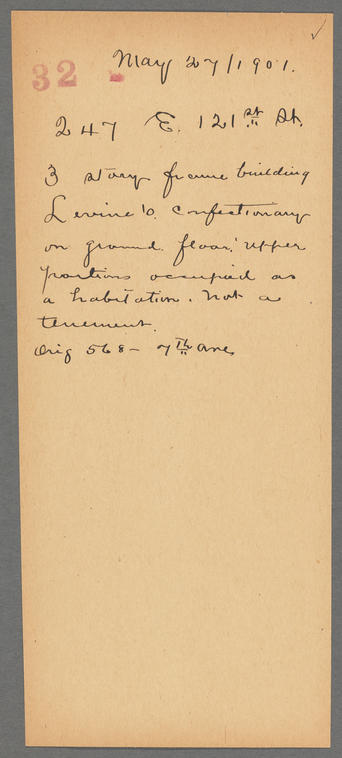 32
May 27/1901.
247 E. 121st St.
3 story frame building
Levine's confectionary
on ground floor. Upper
portions occupied as
a habitation. Not a
tenement.
Orig 568 - 7th Ave